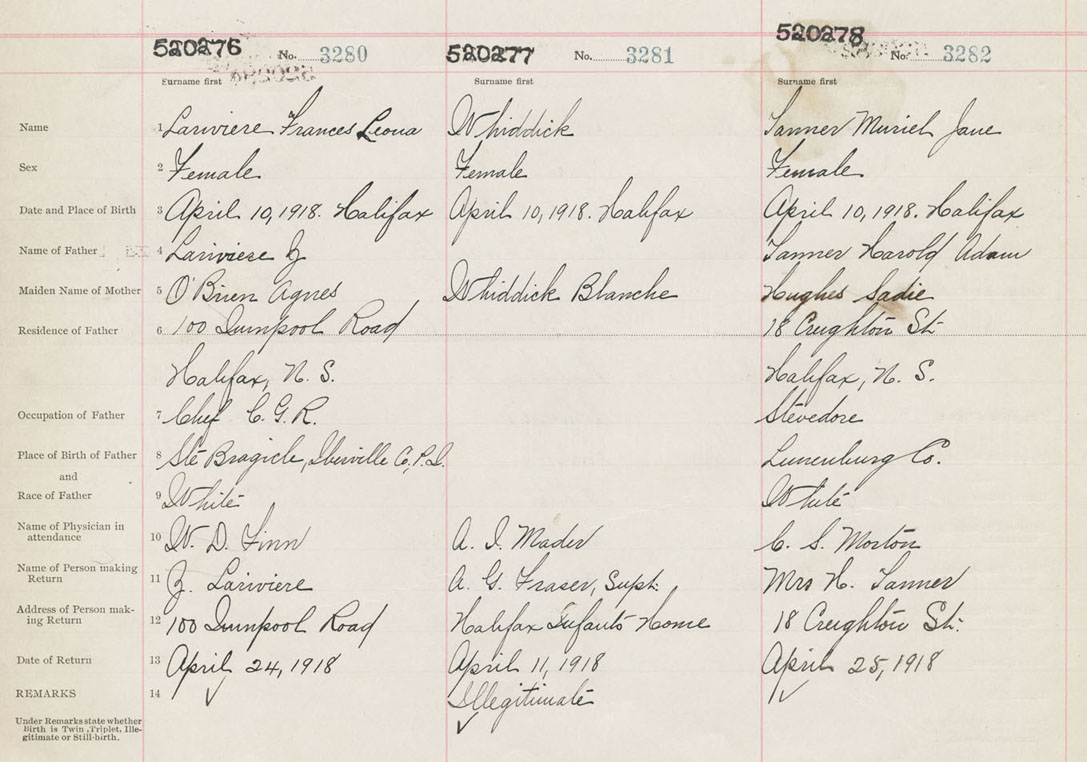 520276 No. 3280 520277 No. 3281 520278 No. 3282
Surname first Surname first Surname first
Name 1 Lariviere Frances Leona Whiddick Tanner Muriel Jane
Sex 2 Female Female Female
Date and Place of Birth 3 April 10, 1918. Halifax April 10, 1918. Halifax April 10, 1918. Halifax
Name of Father 4 Lariviese Tanner Harold Adam
Maiden Name of Mother 5 O'Brien Agnes Whiddick Blanche Hughes Sadie
Residence of Father 6 100 Road 18 Creighton St.
Halifax, N. S. Halifax, N. S.
Occupation of Father 7 Chef C. G. R. Stevedore
Place of Birth of Father 8 Ste Iberville Co. Lunenburg Co.
and
Race of Father 9 White White
Name of Physician in attendance 10 W. D. Finn A. I. Mader C. S. Morton
Name of Person making Return 11 Lariviere A. G. Fraser, Supt. Mrs H. Tanner
Address of Person making Return 12 100 Road Halifax Infants Home 18 Creighton St.
Date of Return 13 April 24, 1918 April 11, 1918 April 25, 1918
REMARKS 14 Illegitimate
Under Remarks state whether
Birth is Twin, Triplet, Ille-
gitimate or Still-birth.